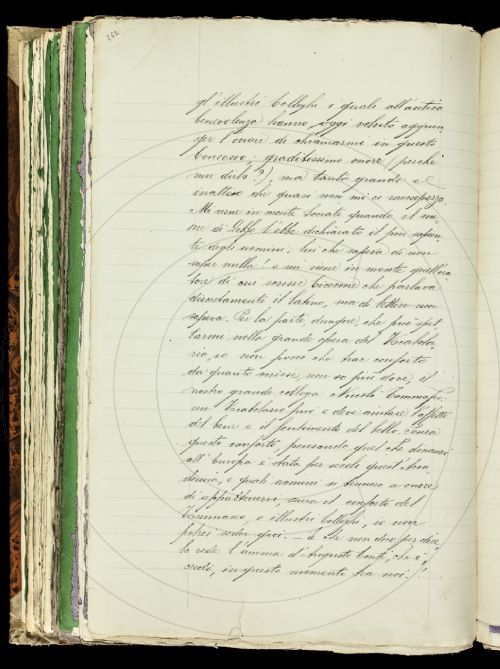 262
gl'illustri Colleghi i quali all'antica
benevolenza hanno, oggi voluto aggiun,
ger l'onore di chiamarmi in questo
Consesso; graditissimo onore (perchè
non dirlo?), ma tanto grande e
inatteso che quasi non mi ci raccapezzo.
Mi viene in mente Socrate quando il nu,
me di Delfo l'ebbe dichiarato il più sapien,
te degli uomini; lui che sapeva di non
saper nulla! e mi viene in mente quell'ora,
tore di cui scrisse Cicerone che parlava
discretamente il latino, ma di lettere non
sapeva. Per la parte, dunque, che può spet,
tarmi nella grande opera del Vocabola,
rio, io non posso che trar conforto
da quanto scrisse, non so più dove, il
nostro grande collega Niccolò Tommaseo:
un Vocabolario può e deve aiutare l'affetto
del bene e il sentimento del bello. Senza
questo conforto, pensando quel che dinanzi
all'Europa è stata per secoli quest'Acca,
demia, e quali uomini si tennero a onore
di appartenervi, senza il conforto del
Tommaseo, o illustri Colleghi, io non
potrei seder qui. — E che non dico per dire,
lo vede l'anima d'Augusto Conti, che è,
credo, in questo momento fra noi!